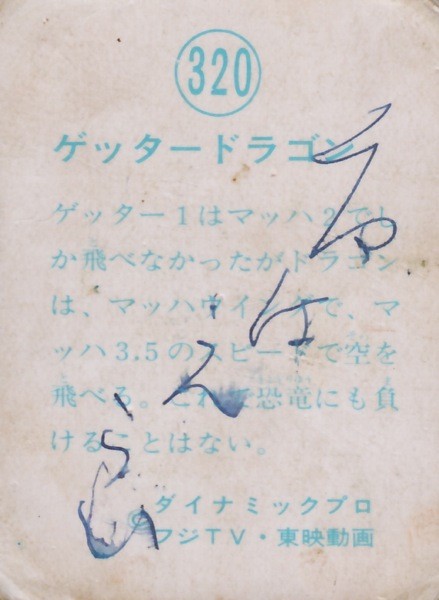 320
ゲッタードラゴン
ゲッター1はマッハ2でし
か飛べなかったがドラゴン
は、マッハウイングで、マ
ッハ3.5のスピードで空を
飛べる。これで恐竜にも負
けることはない。
©ダイナミックプロ
フジTV・東映動画